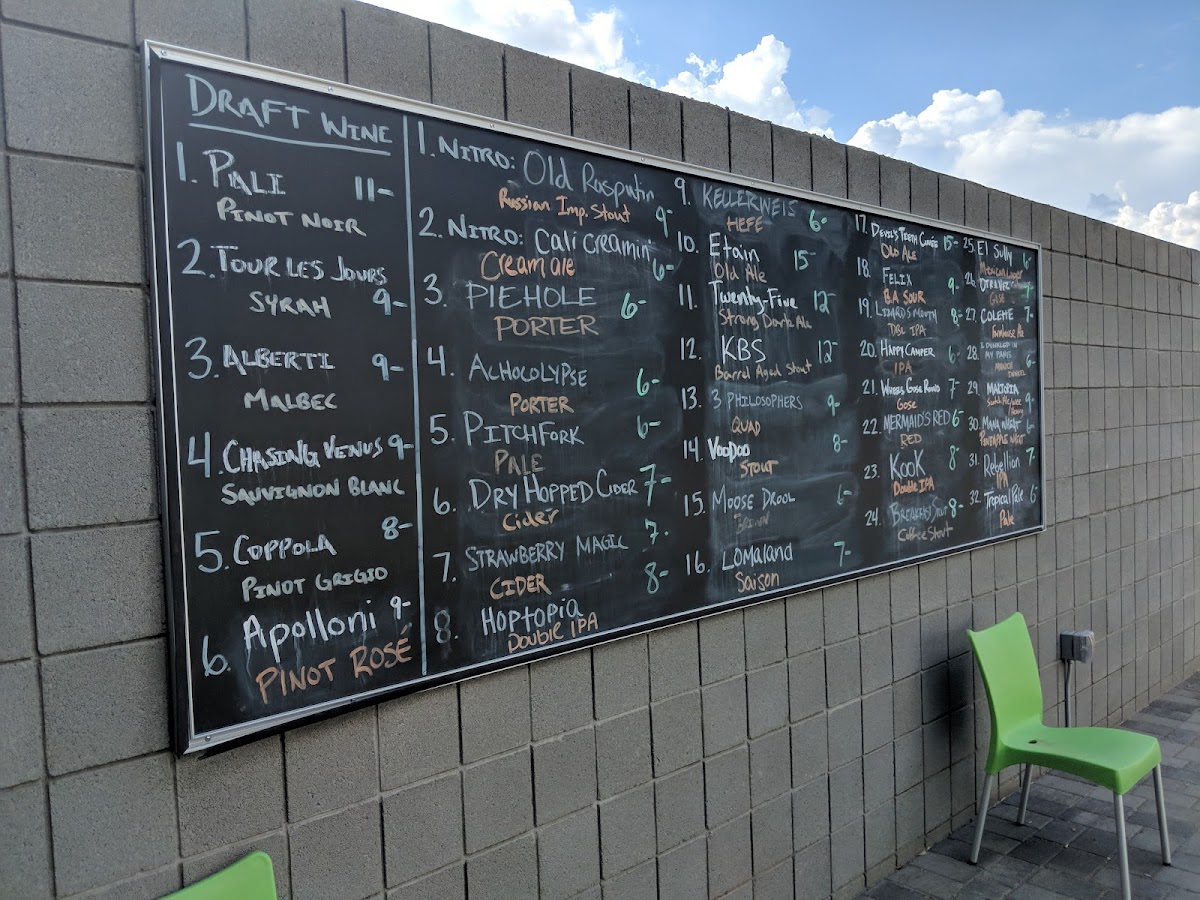 DRAFT WINE
1. PALI 11-
PINOT NOIR
2. TOUR LES JOURS
SYRAH 9-
3. ALBERTI 9-
MALBEC
4. CHASING VENUS 9-
SAUVIGNON BLANC
5. COPPOLA 8-
PINOT GRIGIO
6. Apolloni 9-
PINOT ROSÉ
1. NITRO: Old Rasputin
Russian Imp. Stout 9-
2. NITRO: Cali Creamin'
Cream ale 6-
3. PIEHOLE 6-
PORTER
4. ACHOCOLYPSE 6-
PORTER
5. PITCHFORK 6-
PALE
6. DRY HOPPED CIDER 7-
Cider
7. STRAWBERRY MAGIC 7-
CIDER
8. HOPTOPIA 8-
Double IPA
9. KELLERWEIS 6-
HEFE
10. Etain 15-
Old Ale
11. Twenty-Five 12-
Strong Dark Ale
12. KBS 12-
Barrel Aged Stout
13. 3 PHILOSOPHERS 9-
QUAD
14. VOODOO 8-
STOUT
15. MOOSE DROOL 6-
BROWN
16. LOMALAND 7-
Saison
17. DEVIL'S TEETH 15-
OLD ALE
18. FELIX 9-
B.A SOUR
19. LIZARD'S MOUTH 8-
DBL IPA
20. HAPPY CAMPER 6-
IPA
21. GOSE ROUND 7-
Gose
22. MERMAID'S RED 6-
RED
23. KOOK 8-
Double IPA
24. BREAKFAST STOUT 8-
Coffee Stout
25. El Sully 6-
Mexican Lager
26. OTRA VEZ 7-
GOSE
27. COLETTE 7-
Farmhouse Ale
28. I DUNKLED IN 6-
MY PANTS
MUNICH
DUNKEL
29. 9-
30. MANA WHEAT 6-
PINEAPPLE WHEAT
31. Rebellion 7-
IPA
32. Tropical Pale 6-
Pale